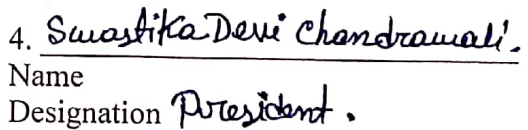 4. Swastika Devi Chandrawali.
Name
Designation President.